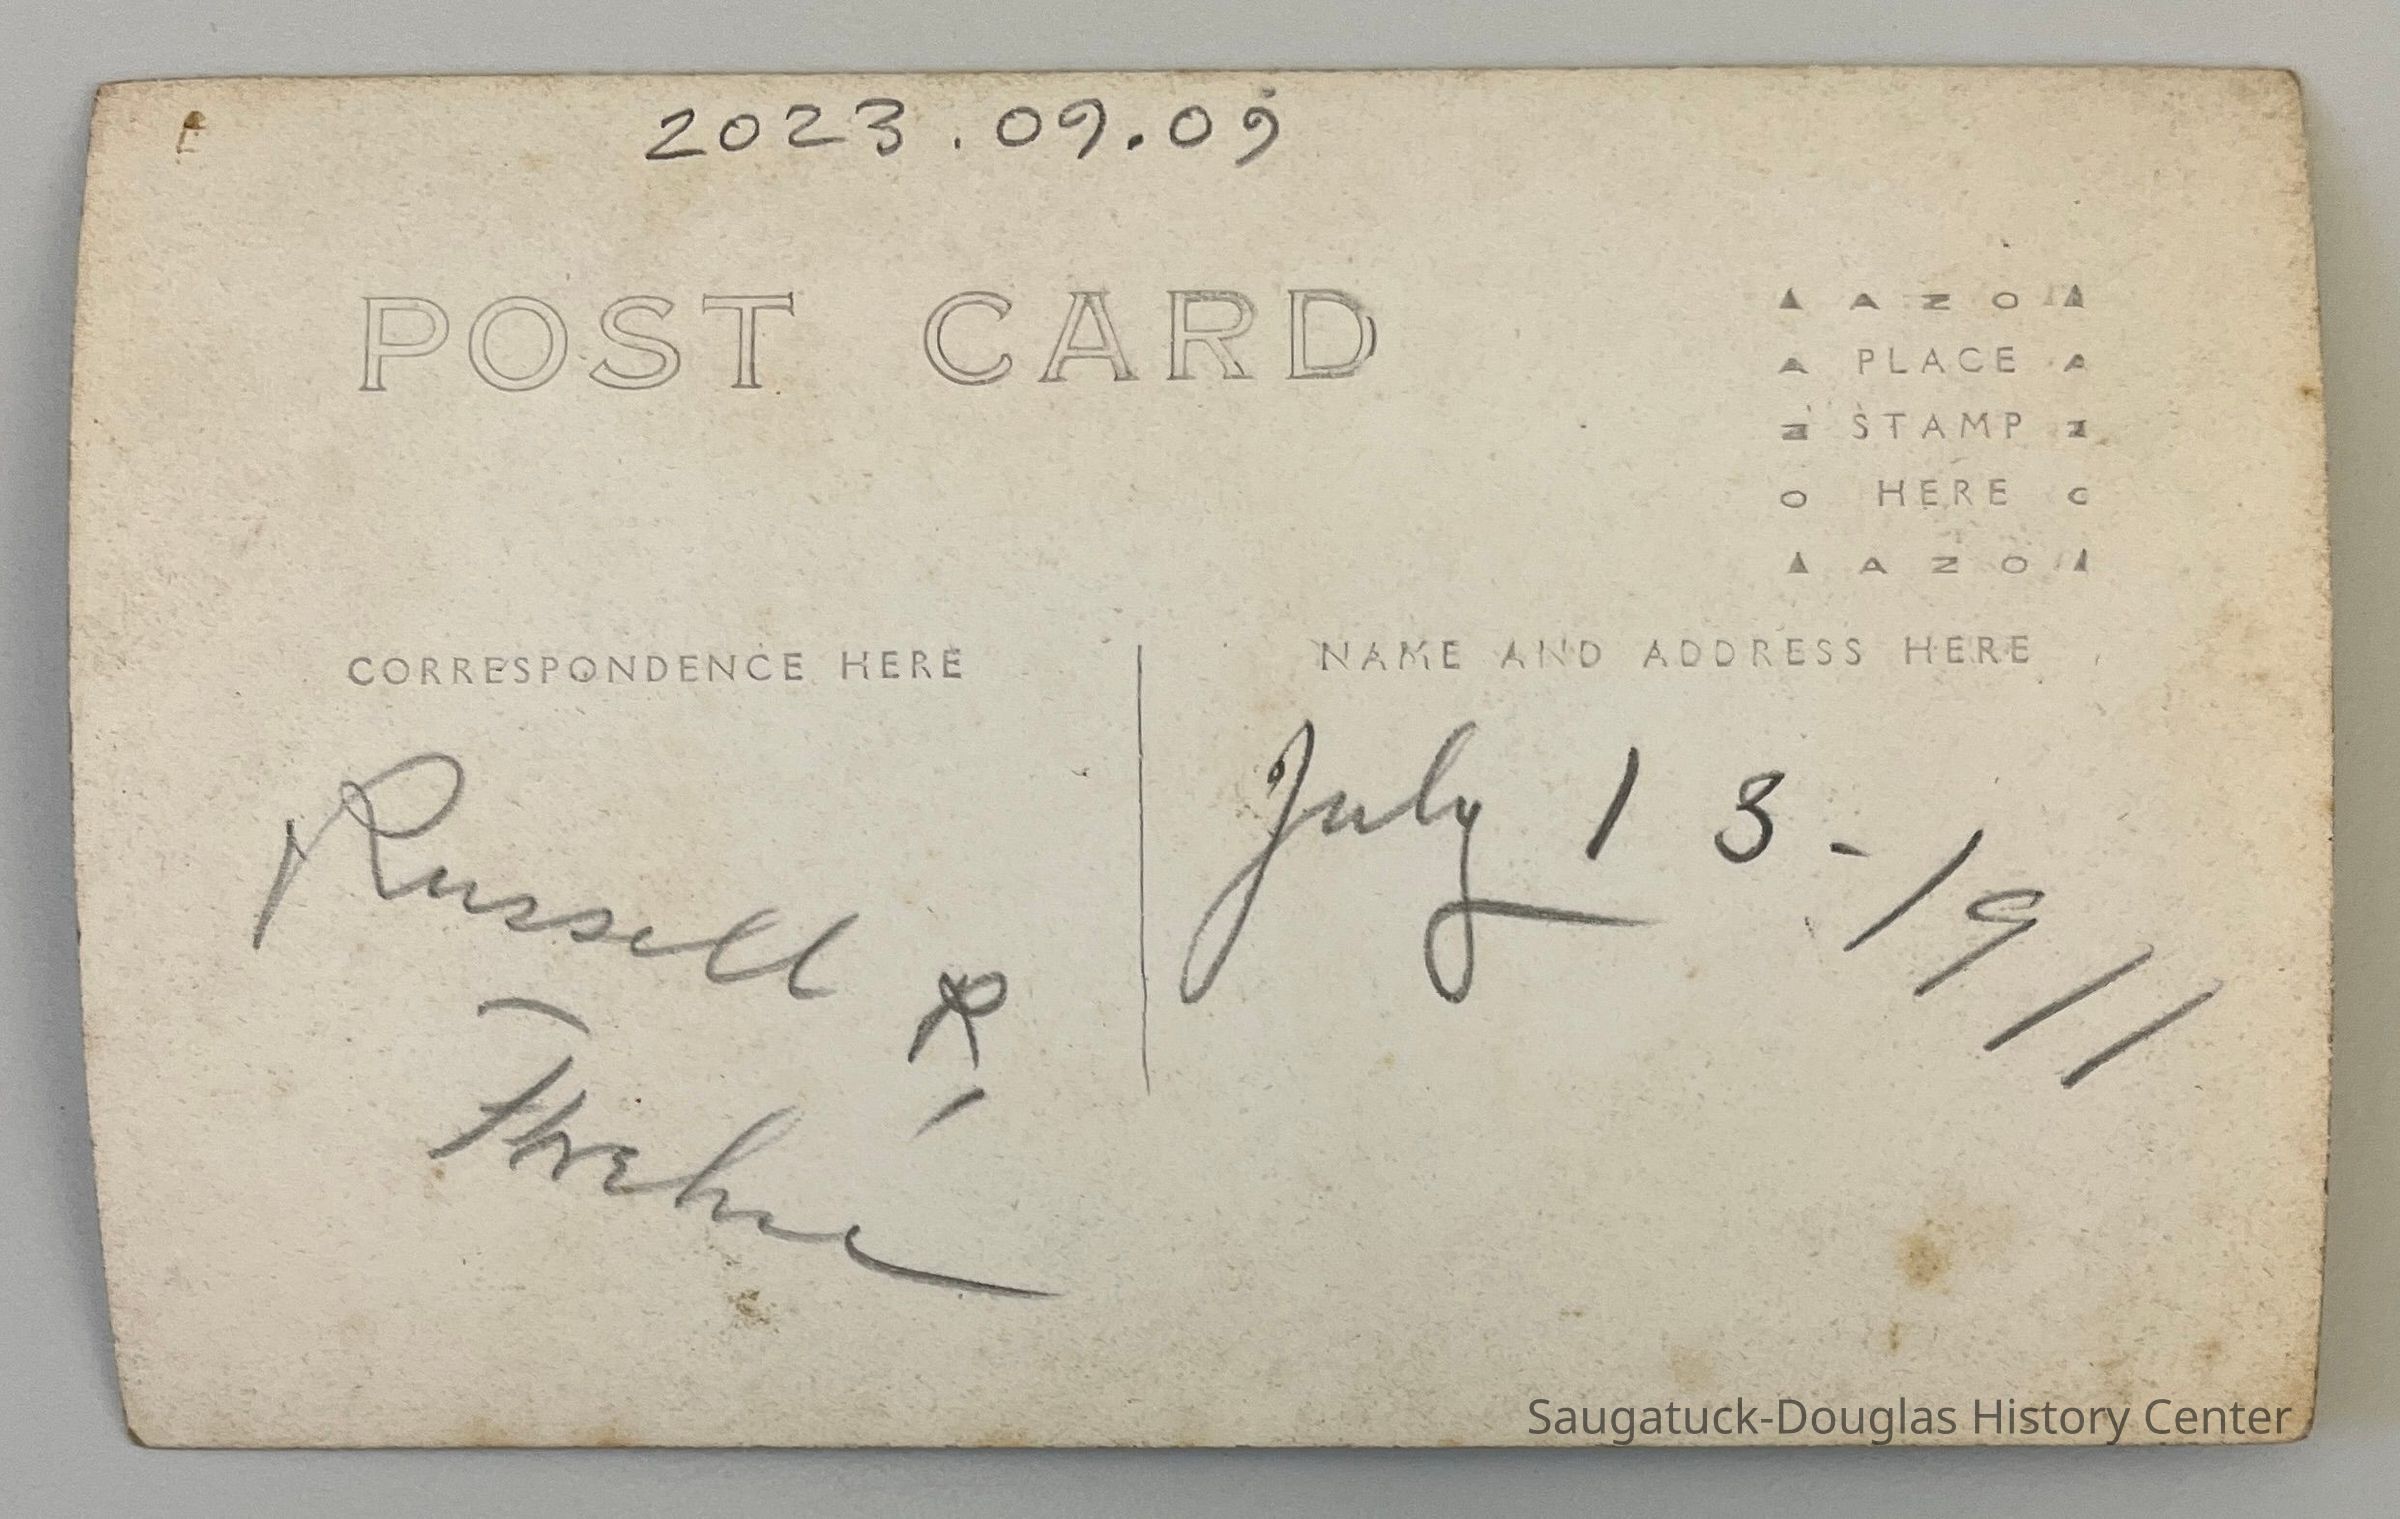 2023.09.09
POST CARD
▲ AZO ▲
A PLACE A
Z STAMP Z
O HERE O
▲ AZO ▲
CORRESPONDENCE HERE
NAME AND ADDRESS HERE
Russell R
July 13-1911
Saugatuck-Douglas History Center